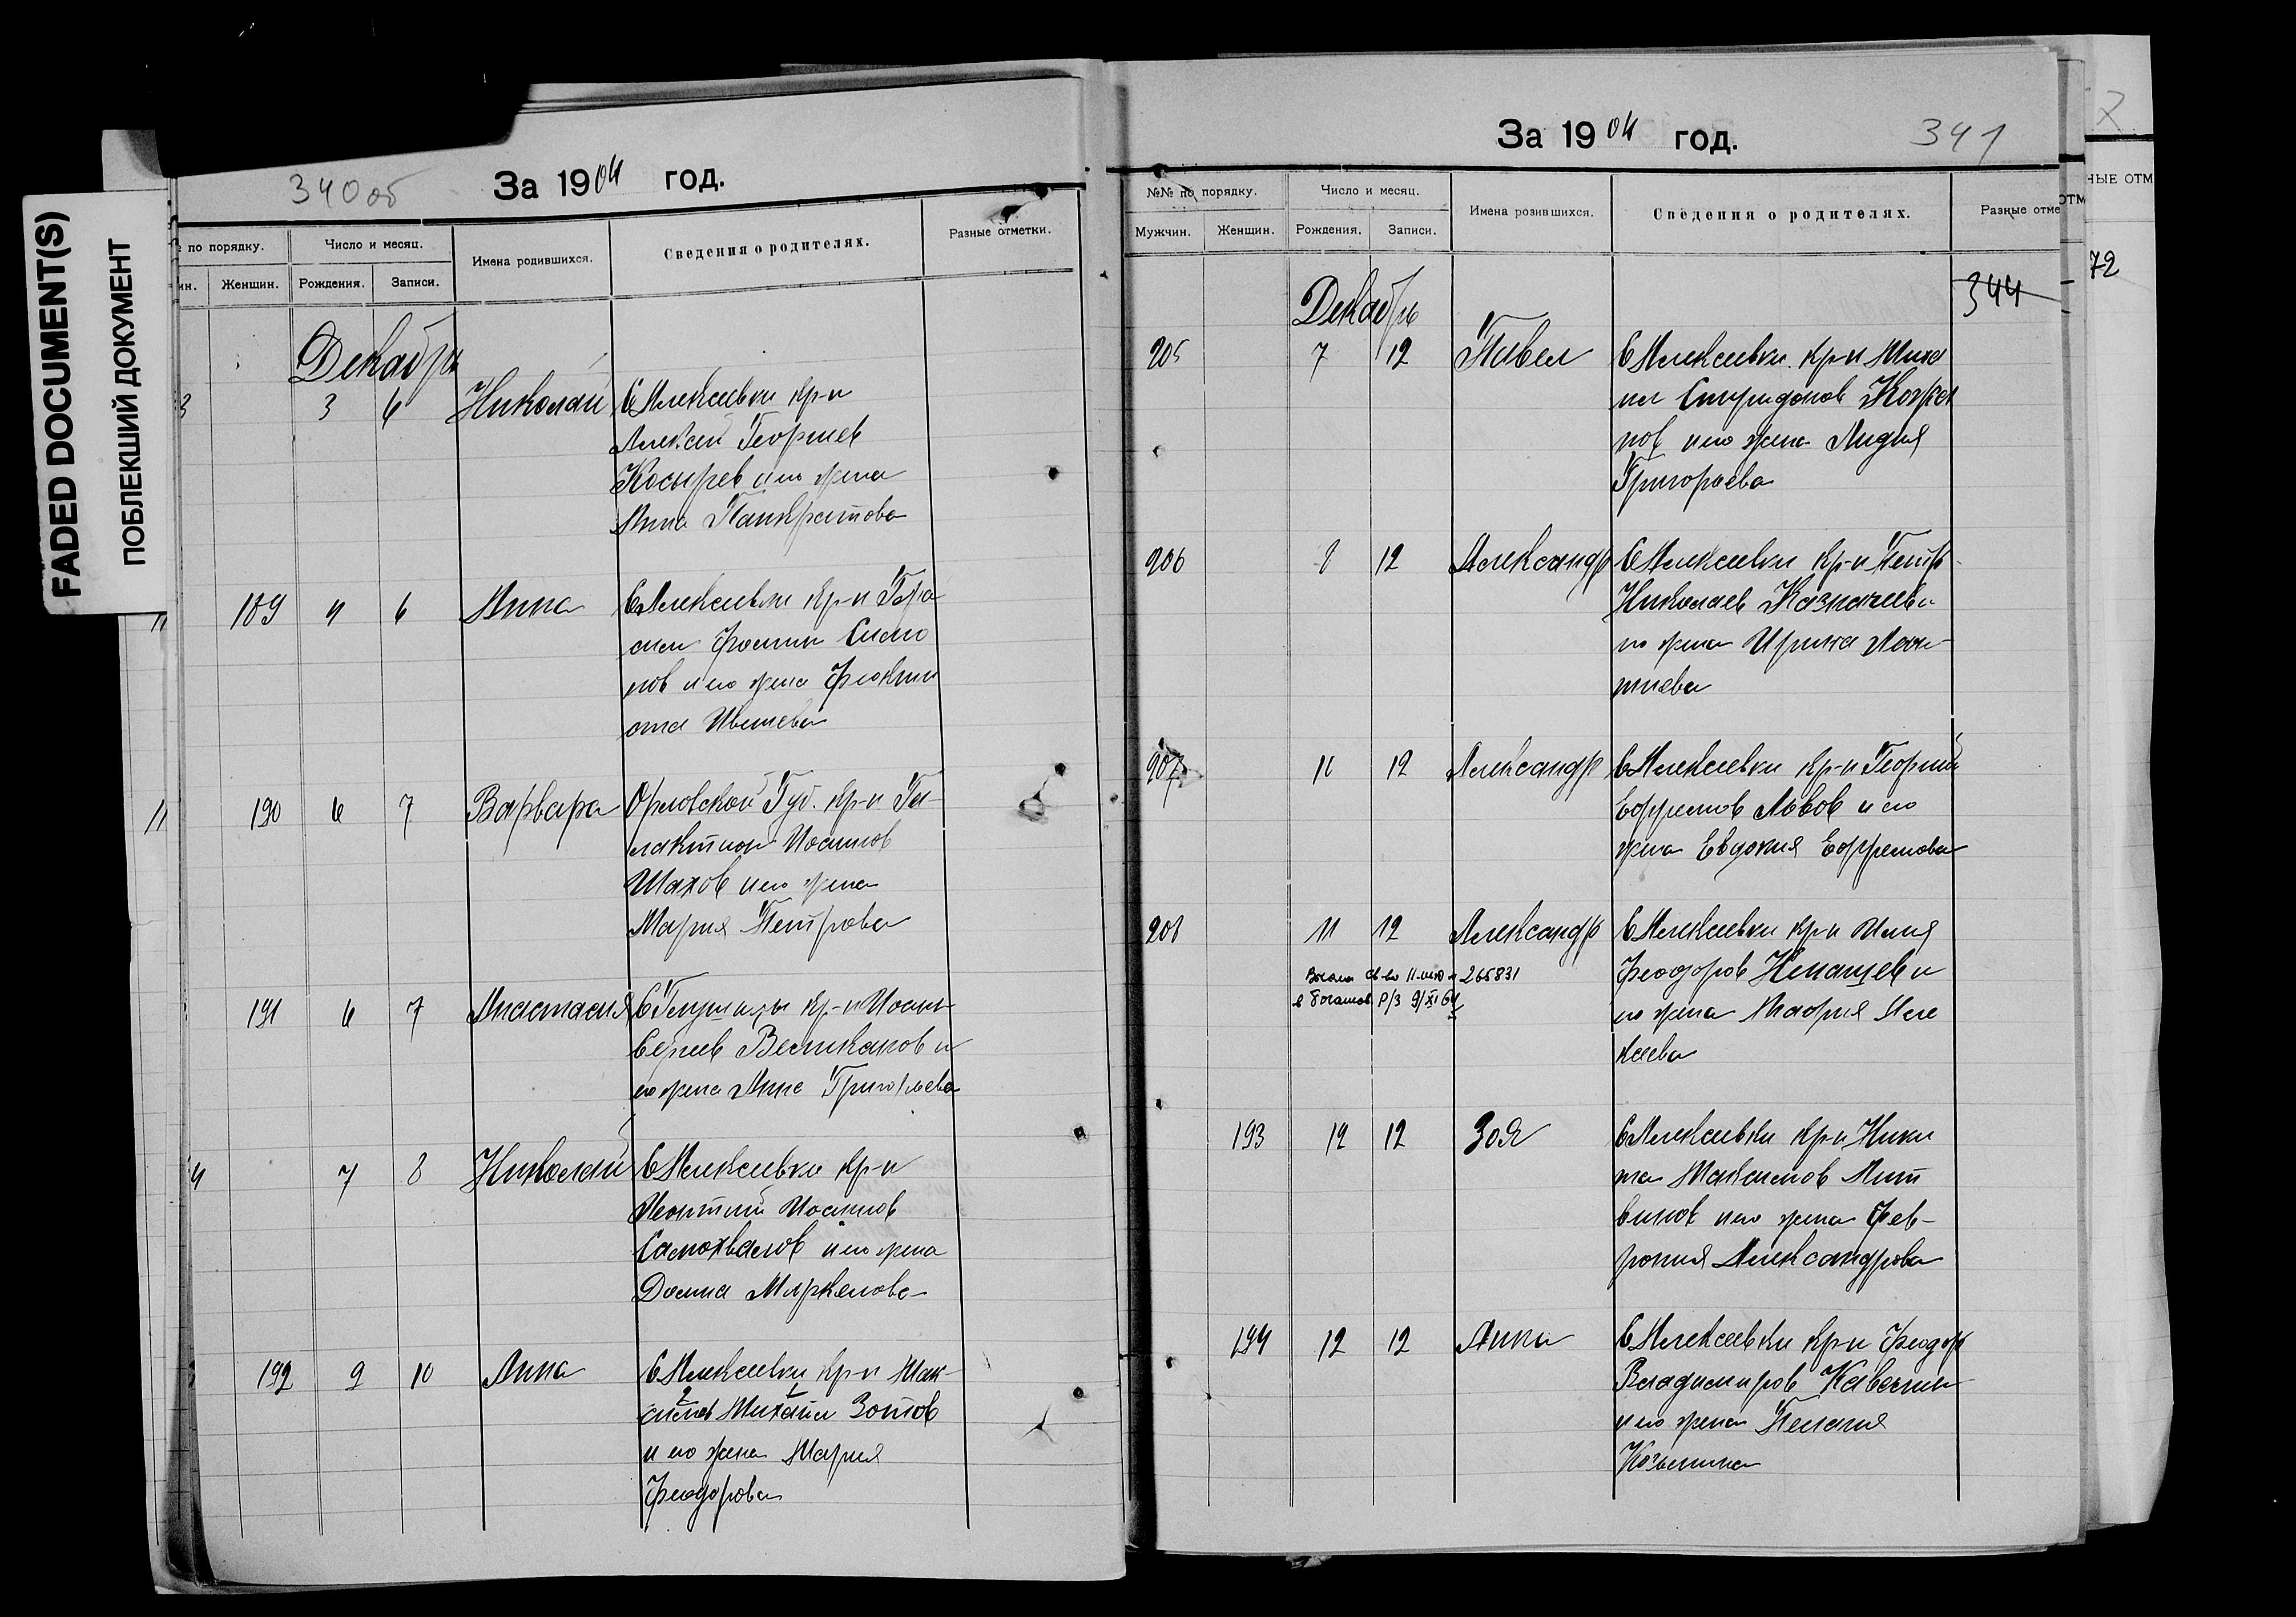 FADED DOCUMENT(S)
ПОБЛЕКШИЙ ДОКУМЕНТ
340 об
За 1904 год.
по порядку.
Число и месяц.
Имена родившихся.
Сведения о родителях.
Разные отметки.
Женщин.
Рождения.
Записи.
Декабрь
3 3 6 Николай С Алексеевки кр-н
Алексей Георгиев
Косырев и его жена
Анна Панкратова
189 4 6 Анна С Алексеевки кр-н Гера
сим Фомин Симо
нов и его жена Феокти
ста
190 6 7 Варвара Орловской Губ. кр-н Га-
лактион Иосипов
Шахов и его жена
Мария Петрова
191 6 7 Анастасия С кр-н Иосип
Сергеев Великанов и
его жена Анна Григорьева
4 7 8 Николай С Алексеевки кр-н
Леонтий Иосипов
Самохвалов и его жена
Домна
192 9 10 Анна С Алексеевки кр-н Мак-
симов Михаил Зотов
2 1
и его жена Мария
Феодорова
За 1904 год.
341
№№ по порядку.
Число и месяц.
Имена розившихся.
Сведения о родителях.
Разные отме
Мужчин.
Женщин.
Рождения.
Записи.
344
Декабрь
205 7 12 Павел С Алексеевки кр-н Миха
ил Спиридонов
нов и его жена Лидия
Григорьева
206 8 12 Александр С Алексеевки кр-н Петр
Николаев Казначеев и
его жена Ирина Леон-
тиева
207 10 12 Александр С Алексеевки кр-н Георгий
Ефремов Львов и его
жена Евдокия Ефремова
208 11 12 Александр С Алексеевки кр-н Илия
Феодоров Кенащев и
его жена Мария Але
ксеева
св-во II 265831
Р/З 9/XI 64
193 12 12 Зоя С Алексеевки кр-н Ники
та Максимов Лит
винов и его жена Фев-
рония Александрова
194 12 12 Анна С Алексеевки кр-н Феодор
Владимиров Каверин
и его жена Пелагия
Козьмина
НЫЕ ОТМ
ОТМ
72